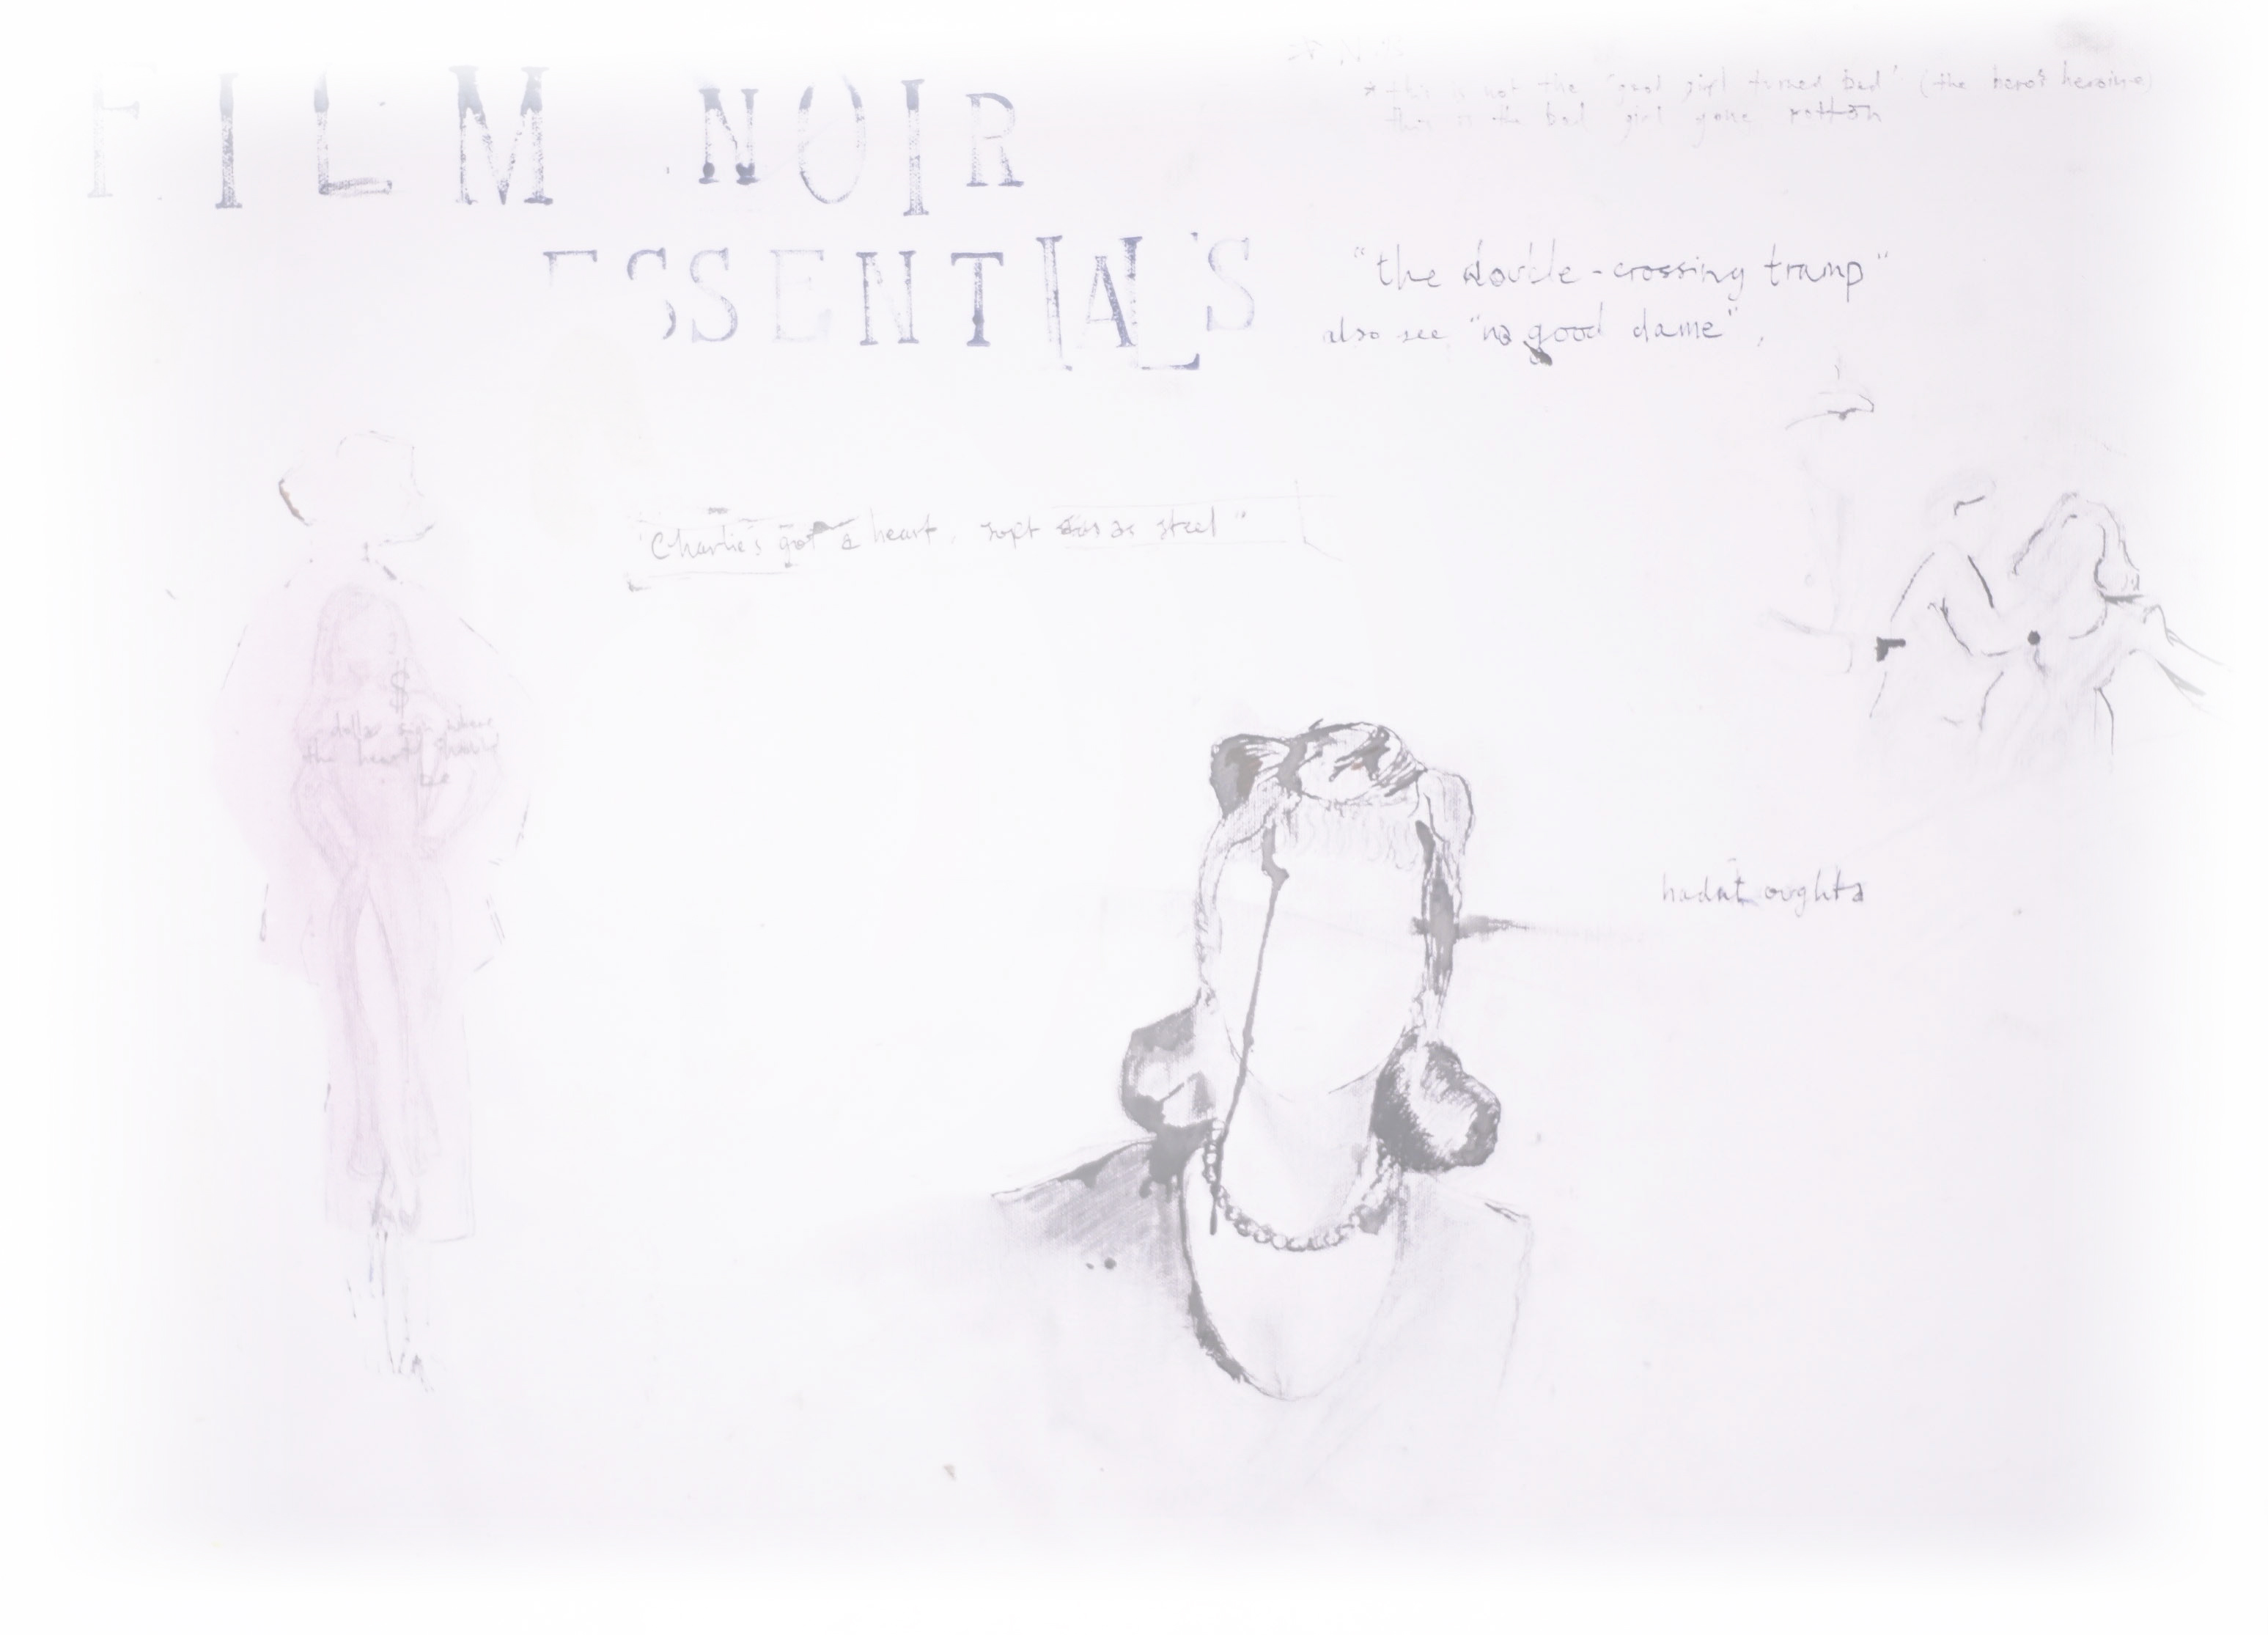 FILM NOIR
ESSENTIALS
* this is not the "good girl turned bad" (the hero's heroine)
this is the bad girl gone rotton
"the double-crossing tramp"
also see "no good dame",
"Charlie's got a heart, soft as steel"
$
dollar sign where
the heart should
be
hadnt oughta